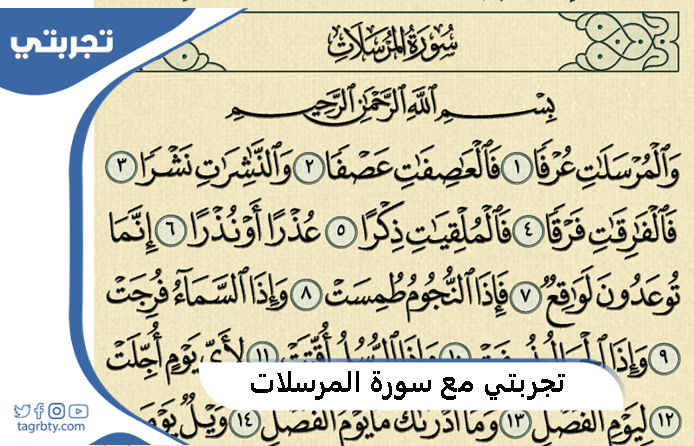 تجربتي
سُورَةُ المُرْسَلَات
بِسْمِ ٱللَّهِ ٱلرَّحْمَٰنِ ٱلرَّحِيمِ
وَٱلْمُرْسَلَٰتِ عُرْفًا ١ فَٱلْعَٰصِفَٰتِ عَصْفًا ٢ وَٱلنَّٰشِرَٰتِ نَشْرًا ٣
فَٱلْفَٰرِقَٰتِ فَرْقًا ٤ فَٱلْمُلْقِيَٰتِ ذِكْرًا ٥ عُذْرًا أَوْ نُذْرًا ٦ إِنَّمَا
تُوعَدُونَ لَوَٰقِعٌ ٧ فَإِذَا ٱلنُّجُومُ طُمِسَتْ ٨ وَإِذَا ٱلسَّمَآءُ فُرِجَتْ
٩ وَإِذَا لِأَىِّ يَوْمٍ أُجِّلَتْ
تجربتي مع سورة المرسلات
١٢ لِيَوْمِ ٱلْفَصْلِ ١٣ وَمَآ أَدْرَىٰكَ مَا يَوْمُ ٱلْفَصْلِ ١٤ وَيْلٌ يَوْمَ
tagrbty.com